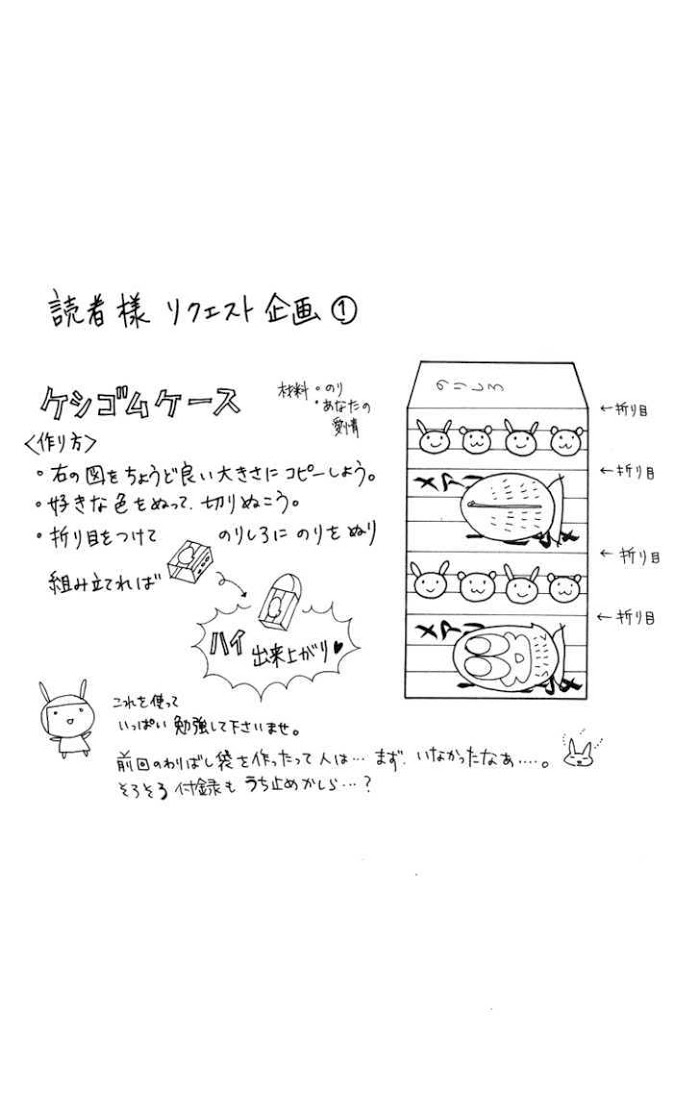 読者様 リクエスト企画①
ケシゴムケース
材料・のり
・あなたの
愛情
〈作り方〉
・右の図をちょうど良い大きさにコピーしよう。
・好きな色をぬって、切りぬこう。
・折り目をつけて のりしろに のりを ぬり
組み立てれば
ハイ 出来上がり♥
これを使って
いっぱい 勉強して下さいませ。
前回のわりばし袋を作ったって人は…まず、いなかったなぁ….。
そろそろ付録も うち止めかしら…?
のりしろ
←折り目
←折り目
←折り目
←折り目
メアリ
メアリ